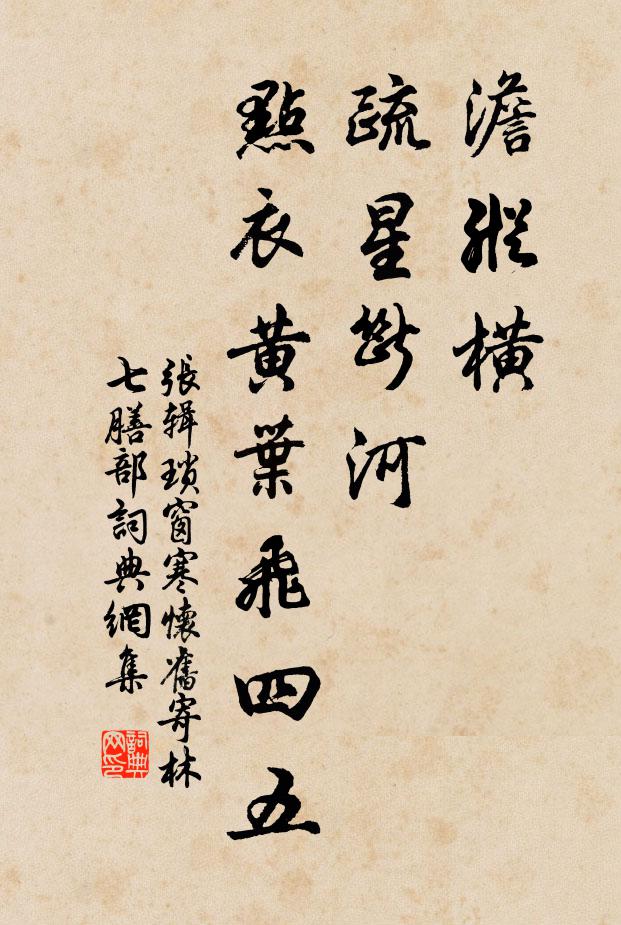 澹縱橫
疏星斷河
點衣黃葉飛四五
張輯瑣窗寒懷舊寄林
七膳部詞典網集
詞典
网印